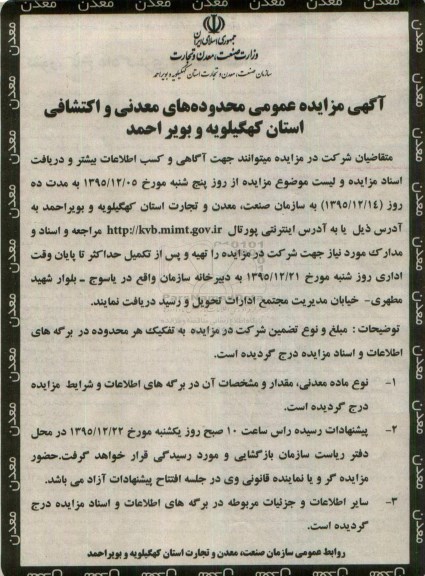 جمهوری اسلامی ایران
وزارت صنعت، معدن و تجارت
سازمان صنعت، معدن و تجارت استان کهگیلویه و بویراحمد
آگهی مزایده عمومی محدوده‌های معدنی و اکتشافی
استان کهگیلویه و بویر احمد
متقاضیان شرکت در مزایده میتوانند جهت آگاهی و کسب اطلاعات بیشتر و دریافت
اسناد مزایده و لیست موضوع مزایده از روز پنج شنبه مورخ ۱۳۹۵/۱۲/۰۵ به مدت ده
روز (۱۳۹۵/۱۲/۱٤) به سازمان صنعت، معدن و تجارت استان کهگیلویه و بویراحمد به
آدرس ذیل یا به آدرس اینترنتی پورتال http://kvb.mimt.gov.ir مراجعه و اسناد و
مدارک مورد نیاز جهت شرکت در مزایده را تهیه و پس از تکمیل حداکثر تا پایان وقت
اداری روز شنبه مورخ ۱۳۹۵/۱۲/۲۱ به دبیرخانه سازمان واقع در یاسوج ـ بلوار شهید
مطهری- خیابان مدیریت مجتمع ادارات تحویل و رسید دریافت نمایند.
توضیحات : مبلغ و نوع تضمین شرکت در مزایده به تفکیک هر محدوده در برگه های
اطلاعات و اسناد مزایده درج گردیده است.
۱- نوع ماده معدنی، مقدار و مشخصات آن در برگه های اطلاعات و شرایط مزایده
درج گردیده است.
۲- پیشنهادات رسیده راس ساعت ۱۰ صبح روز یکشنبه مورخ ۱۳۹۵/۱۲/۲۲ در محل
دفتر ریاست سازمان بازگشایی و مورد رسیدگی قرار خواهد گرفت.حضور
مزایده گر و یا نماینده قانونی وی در جلسه افتتاح پیشنهادات آزاد می باشد.
۳- سایر اطلاعات و جزئیات مربوطه در برگه های اطلاعات و اسناد مزایده درج
گردیده است.
روابط عمومی سازمان صنعت، معدن و تجارت استان کهگیلویه و بویراحمد